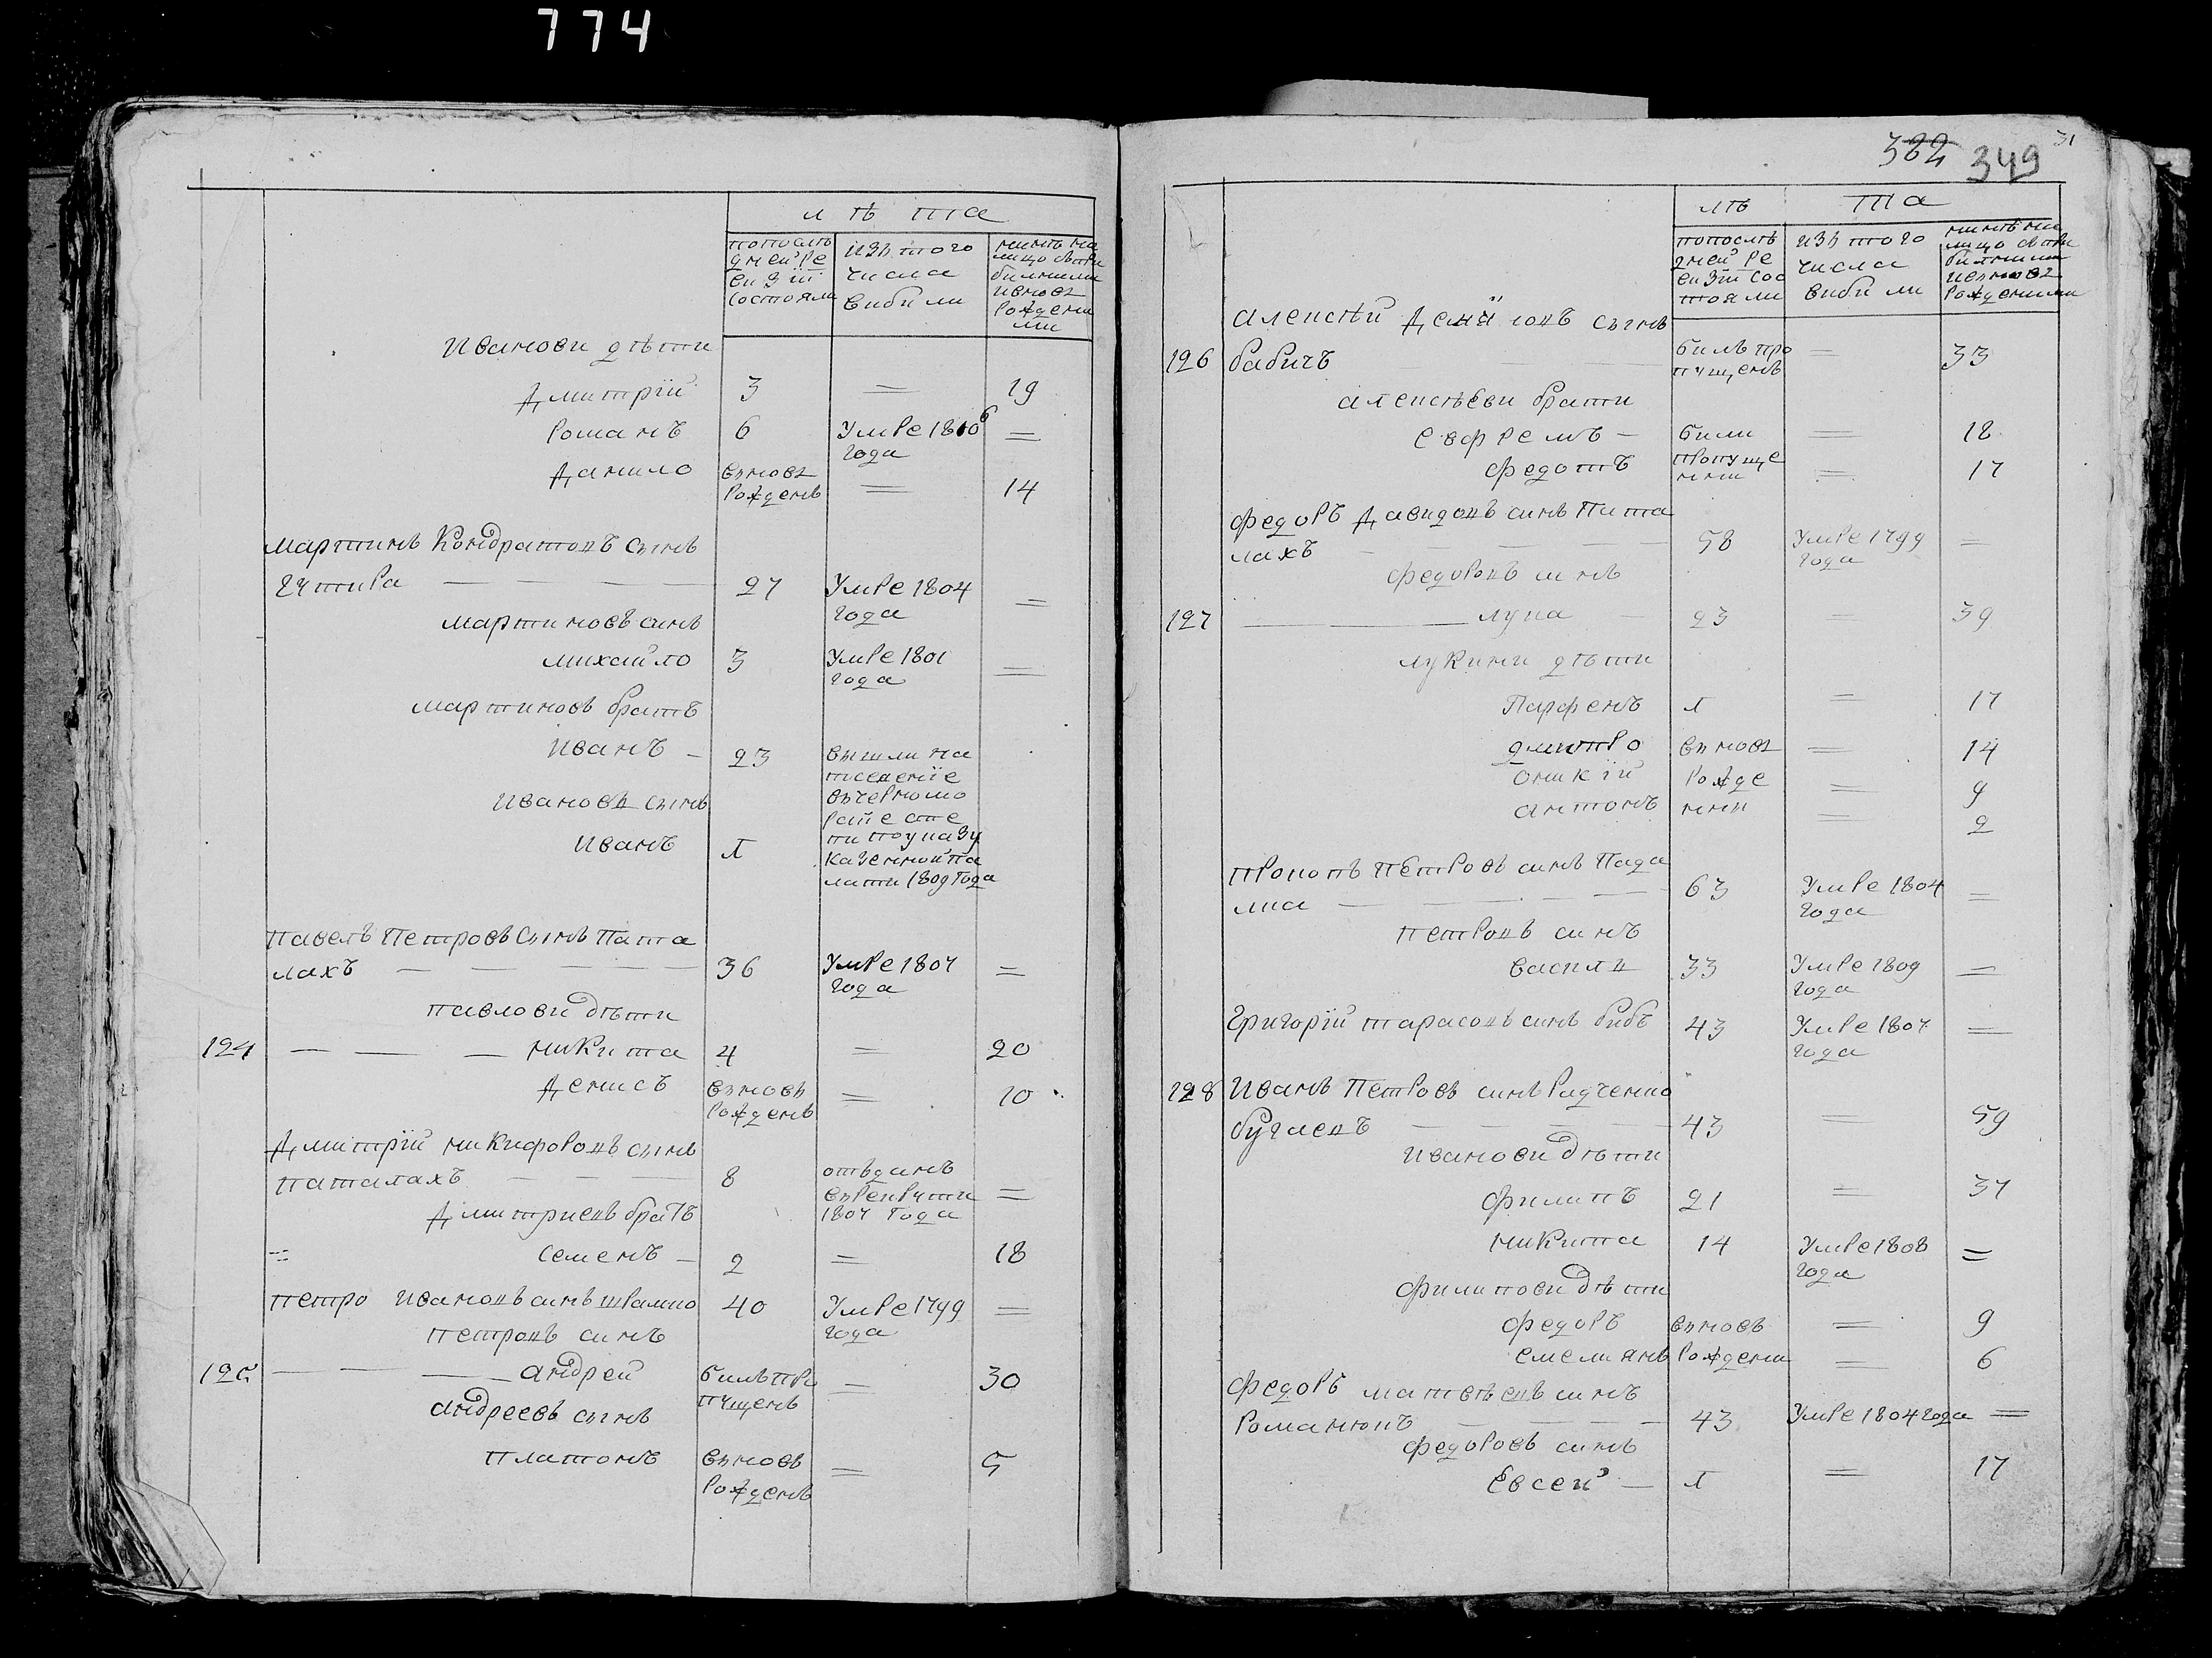 774
лѣта
попослѣ дней ре визiи состояли
изъ того числа вибили
нинѣ на лицо съ при бившими и вновь рождени ми
Иванови дѣти
Дмитрiй 3 = 19
Романъ 6 Умре 1806 года =
Данило вновь рожденъ = 14
Мартинъ Кондратовъ сынъ
гутира 27 Умре 1804 года =
Мартиновъ синъ
Михайло 3 Умре 1801 года =
Мартиновъ братъ
Иванъ 23 вышли на
поселенiе
Ивановъ сынъ
Иванъ
казенной па
лати 1809 года
Павелъ Петровъ сынъ Пата
лахъ 36 Умре 1807 года =
Павлови дѣти
124 Никита 4 = 20
Денисъ вновь рожденъ = 10
Дмитрiй Никифоровъ сынъ
Паталахъ 8 отъданъ
въ рекрути
1807 года =
Дмитриевъ братъ
= Семенъ 2 = 18
Петро Ивановъ синъ шрамко 40 Умре 1799 года =
Петровъ синъ
125 Андрей билъ про пущенъ = 30
Андреевъ сынъ
Платонъ вновь рожденъ = 5
31
382 349
лѣ та
попослѣ дней ре визiи сос тояли
изъ того числа вибили
нинѣ на лицо съ при бившими и вновь рожденими
Алексѣй сынъ
126 бабичъ билъ про пущенъ = 33
Алексѣеви брати
Евфремъ били = 18
Федотъ пропуще нни = 17
Федоръ Давидовъ синъ Пата
лахъ 58 Умре 1799 года =
Федоровъ синъ
127 Лука 23 = 39
Лукини дѣти
Парфенъ = 17
Дмитро вновь = 14
Оникiй рожде = 9
Антонъ нни = 2
Прокопъ Петровъ синъ Пада
лка 63 Умре 1804 года =
Петровъ синъ
Василь 33 Умре 1809 года =
Григорiй Тарасовъ синъ бибъ 43 Умре 1807 года =
128 Иванъ Петровъ синъ Радченко
43 = 59
Иванови дѣти
Филипъ 21 = 37
Никита 14 Умре 1808 года =
Филипови дѣти
Федоръ вновь = 9
Емелианъ рождени = 6
Федоръ Матвѣевъ синъ
Романюкъ 43 Умре 1804 года =
Федоровъ синъ
Евсей = 17